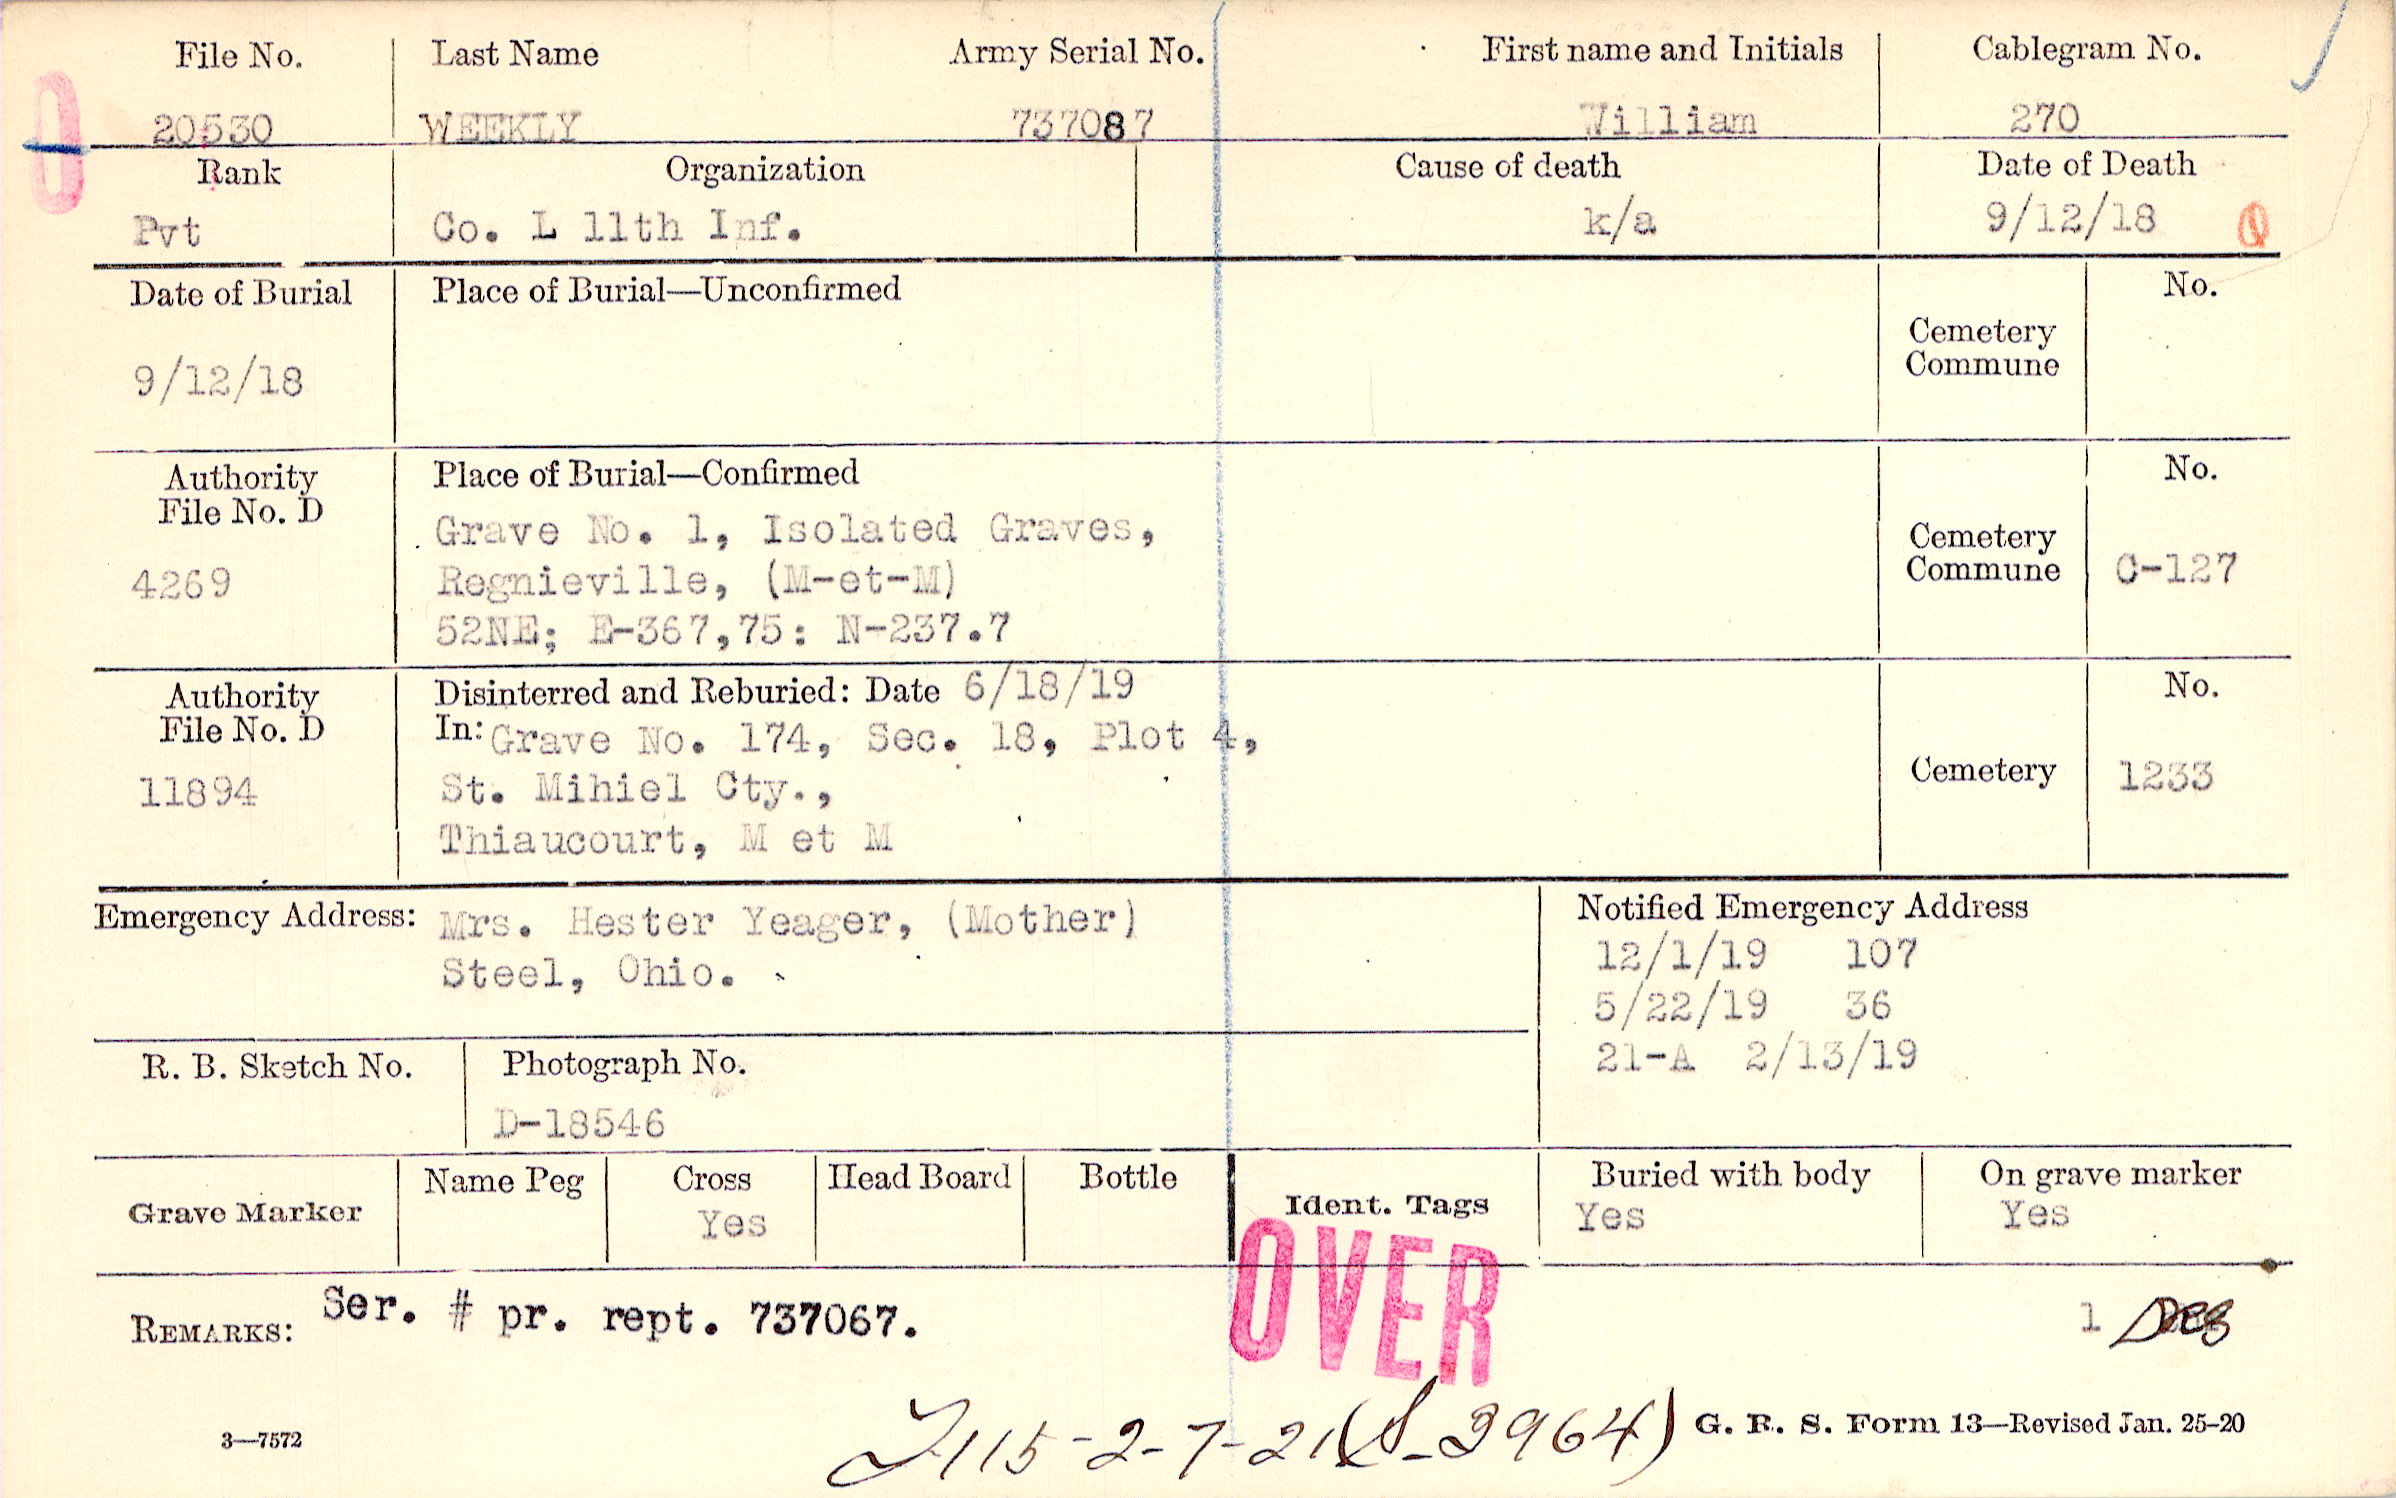 File No. Last Name Army Serial No. First name and Initials Cablegram No.
20530 WEEKLY 737087 William 270
Rank Organization Cause of death Date of Death
Pvt Co. L 11th Inf. k/a 9/12/18
Date of Burial Place of Burial—Unconfirmed No.
Cemetery
Commune
9/12/18
Authority Place of Burial—Confirmed No.
File No. D
Grave No. 1, Isolated Graves, Cemetery
4269 Regnieville, (M-et-M) Commune C-127
52NE; E-367,75: N-237.7
Authority Disinterred and Reburied: Date 6/18/19 No.
File No. D In: Grave No. 174, Sec. 18, Plot 4,
11894 St. Mihiel Cty., Cemetery 1233
Thiaucourt, M et M
Emergency Address: Mrs. Hester Yeager, (Mother) Notified Emergency Address
Steel, Ohio. 12/1/19 107
5/22/19 36
21-A 2/13/19
R. B. Sketch No. Photograph No.
D-18546
Grave Marker Name Peg Cross Head Board Bottle Ident. Tags Buried with body On grave marker
Yes Yes Yes
OVER
REMARKS: Ser. # pr. rept. 737067. 1
3—7572 115-2-7-21(S-3964) G. R. S. Form 13—Revised Jan. 25-20